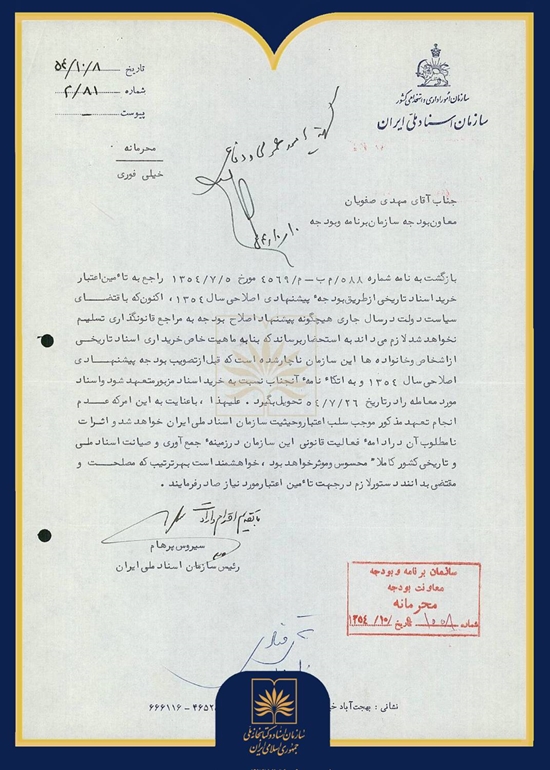 تاریخ ۵۴/۱۰/۸
شماره ۲/۸۱
پیوست ـــ
محرمانه
خیلی فوری
سازمان امور اداری و استخدامی کشور
سازمان اسناد ملی ایران
جناب آقای مهدی صفویان
معاون بودجه سازمان برنامه و بودجه
بازگشت به نامه شماره ۵۸۸/م ب-م/۴۵۶۹ مورخ ۱۳۵۴/۷/۵ راجع به تاءمین اعتبار
خرید اسناد تاریخی از طریق بودجهٔ پیشنهادی اصلاحی سال ۱۳۵۴، اکنون که باقتضای
سیاست دولت در سال جاری هیچگونه پیشنهاد اصلاح بودجه به مراجع قانونگذاری تسلیم
نخواهد شد لازم می داند به استحضار برساند که بنابه ماهیت خاص خریداری اسناد تاریخی
از اشخاص و خانواده ها این سازمان ناچار شده است که قبل از تصویب بودجه پیشنهادی
اصلاحی سال ۱۳۵۴ و به اتکاء نامهٔ آنجناب نسبت به خرید اسناد مزبور متعهد شود و اسناد
مورد معامله را در تاریخ ۵۴/۷/۲۶ تحویل بگیرد. علیهذا، باعنایت به این امر که عدم
انجام تعهد مذکور موجب سلب اعتبار و حیثیت سازمان اسناد ملی ایران خواهد شد و اثرات
نامطلوب آن در ادامهٔ فعالیت قانونی این سازمان در زمینهٔ جمع آوری و صیانت اسناد ملی
و تاریخی کشور کاملا" محسوس و موثر خواهد بود، خواهشمند است بهر ترتیب که مصلحت و
مقتضی بدانند دستور لازم در جهت تاءمین اعتبار مورد نیاز صادر فرمایند.
با تقدیم احترام و ارادت
سیروس پرهام
رئیس سازمان اسناد ملی ایران
سازمان برنامه و بودجه
معاونت بودجه
محرمانه
شماره ۱۰۰۸ تاریخ /۱۰/ ۱۳۵۴
نشانی : بهجت آباد
۶۶۶۱۱۶ - ۴۶۵۲
سازمان اسناد و کتابخانه ملی
جمهوری اسلامی ایران